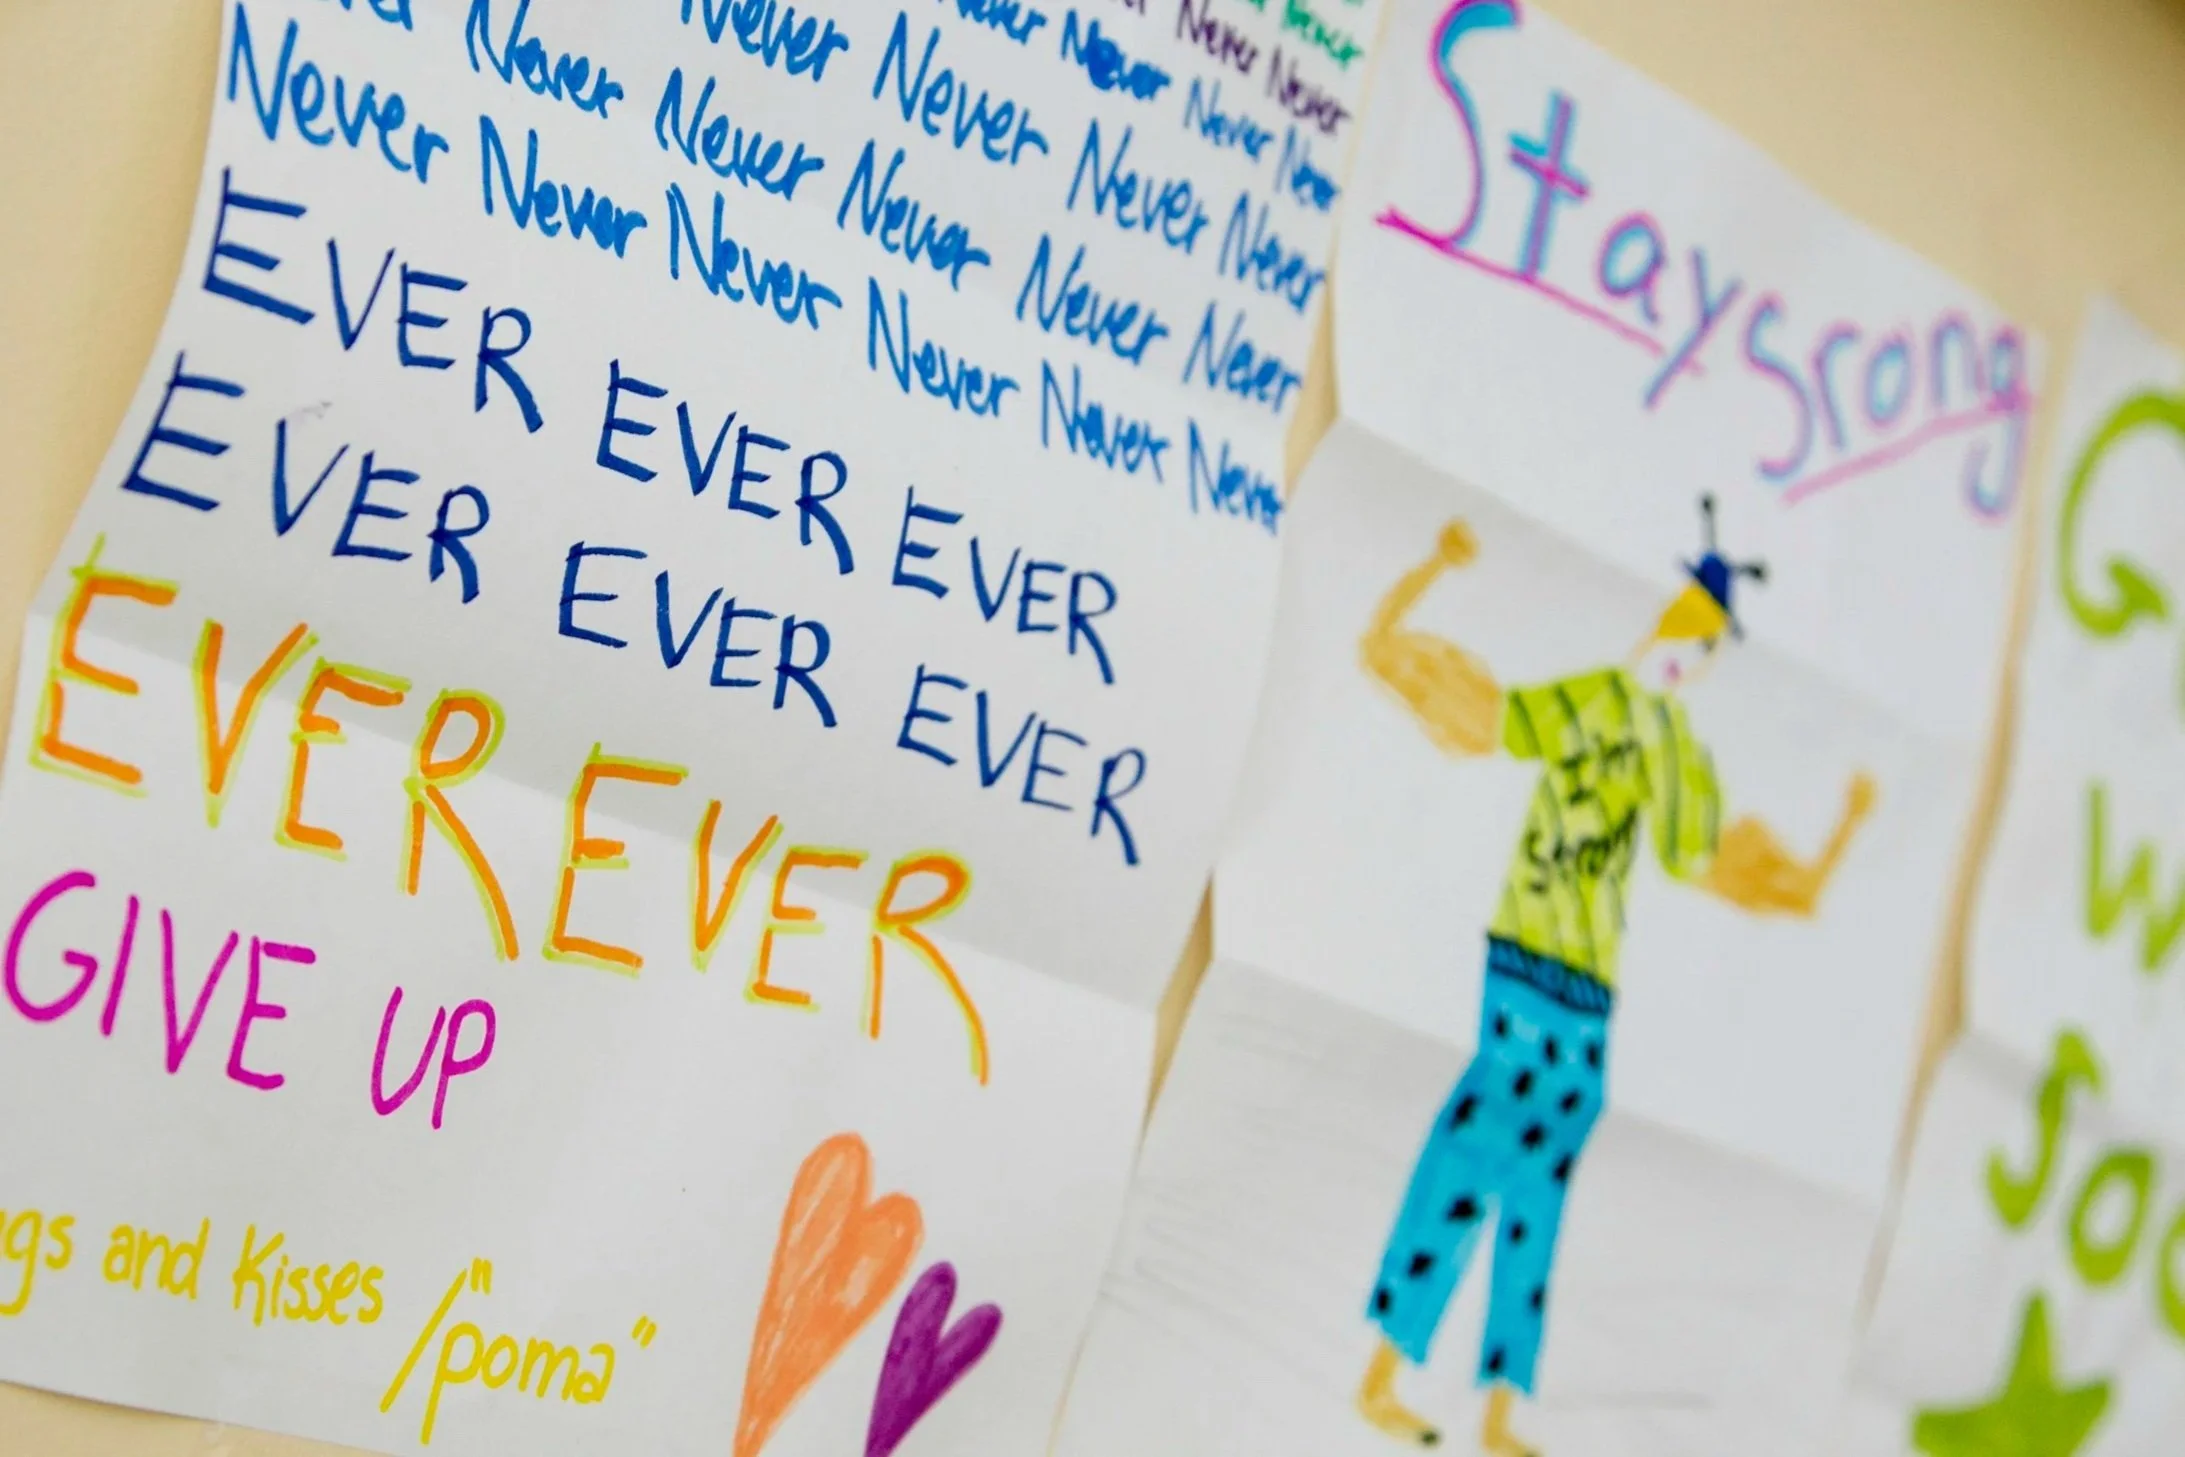 Never
Never Never
Never Never Never Never
Never Never Never Never
Never Never Never Never Never
Never Never Never Never Never Never
EVER EVER EVER
EVER EVER EVER
EVER EVER
GIVE UP
gs and Kisses /"poma"
Stay Srong
I'm
Strong
G
W
So